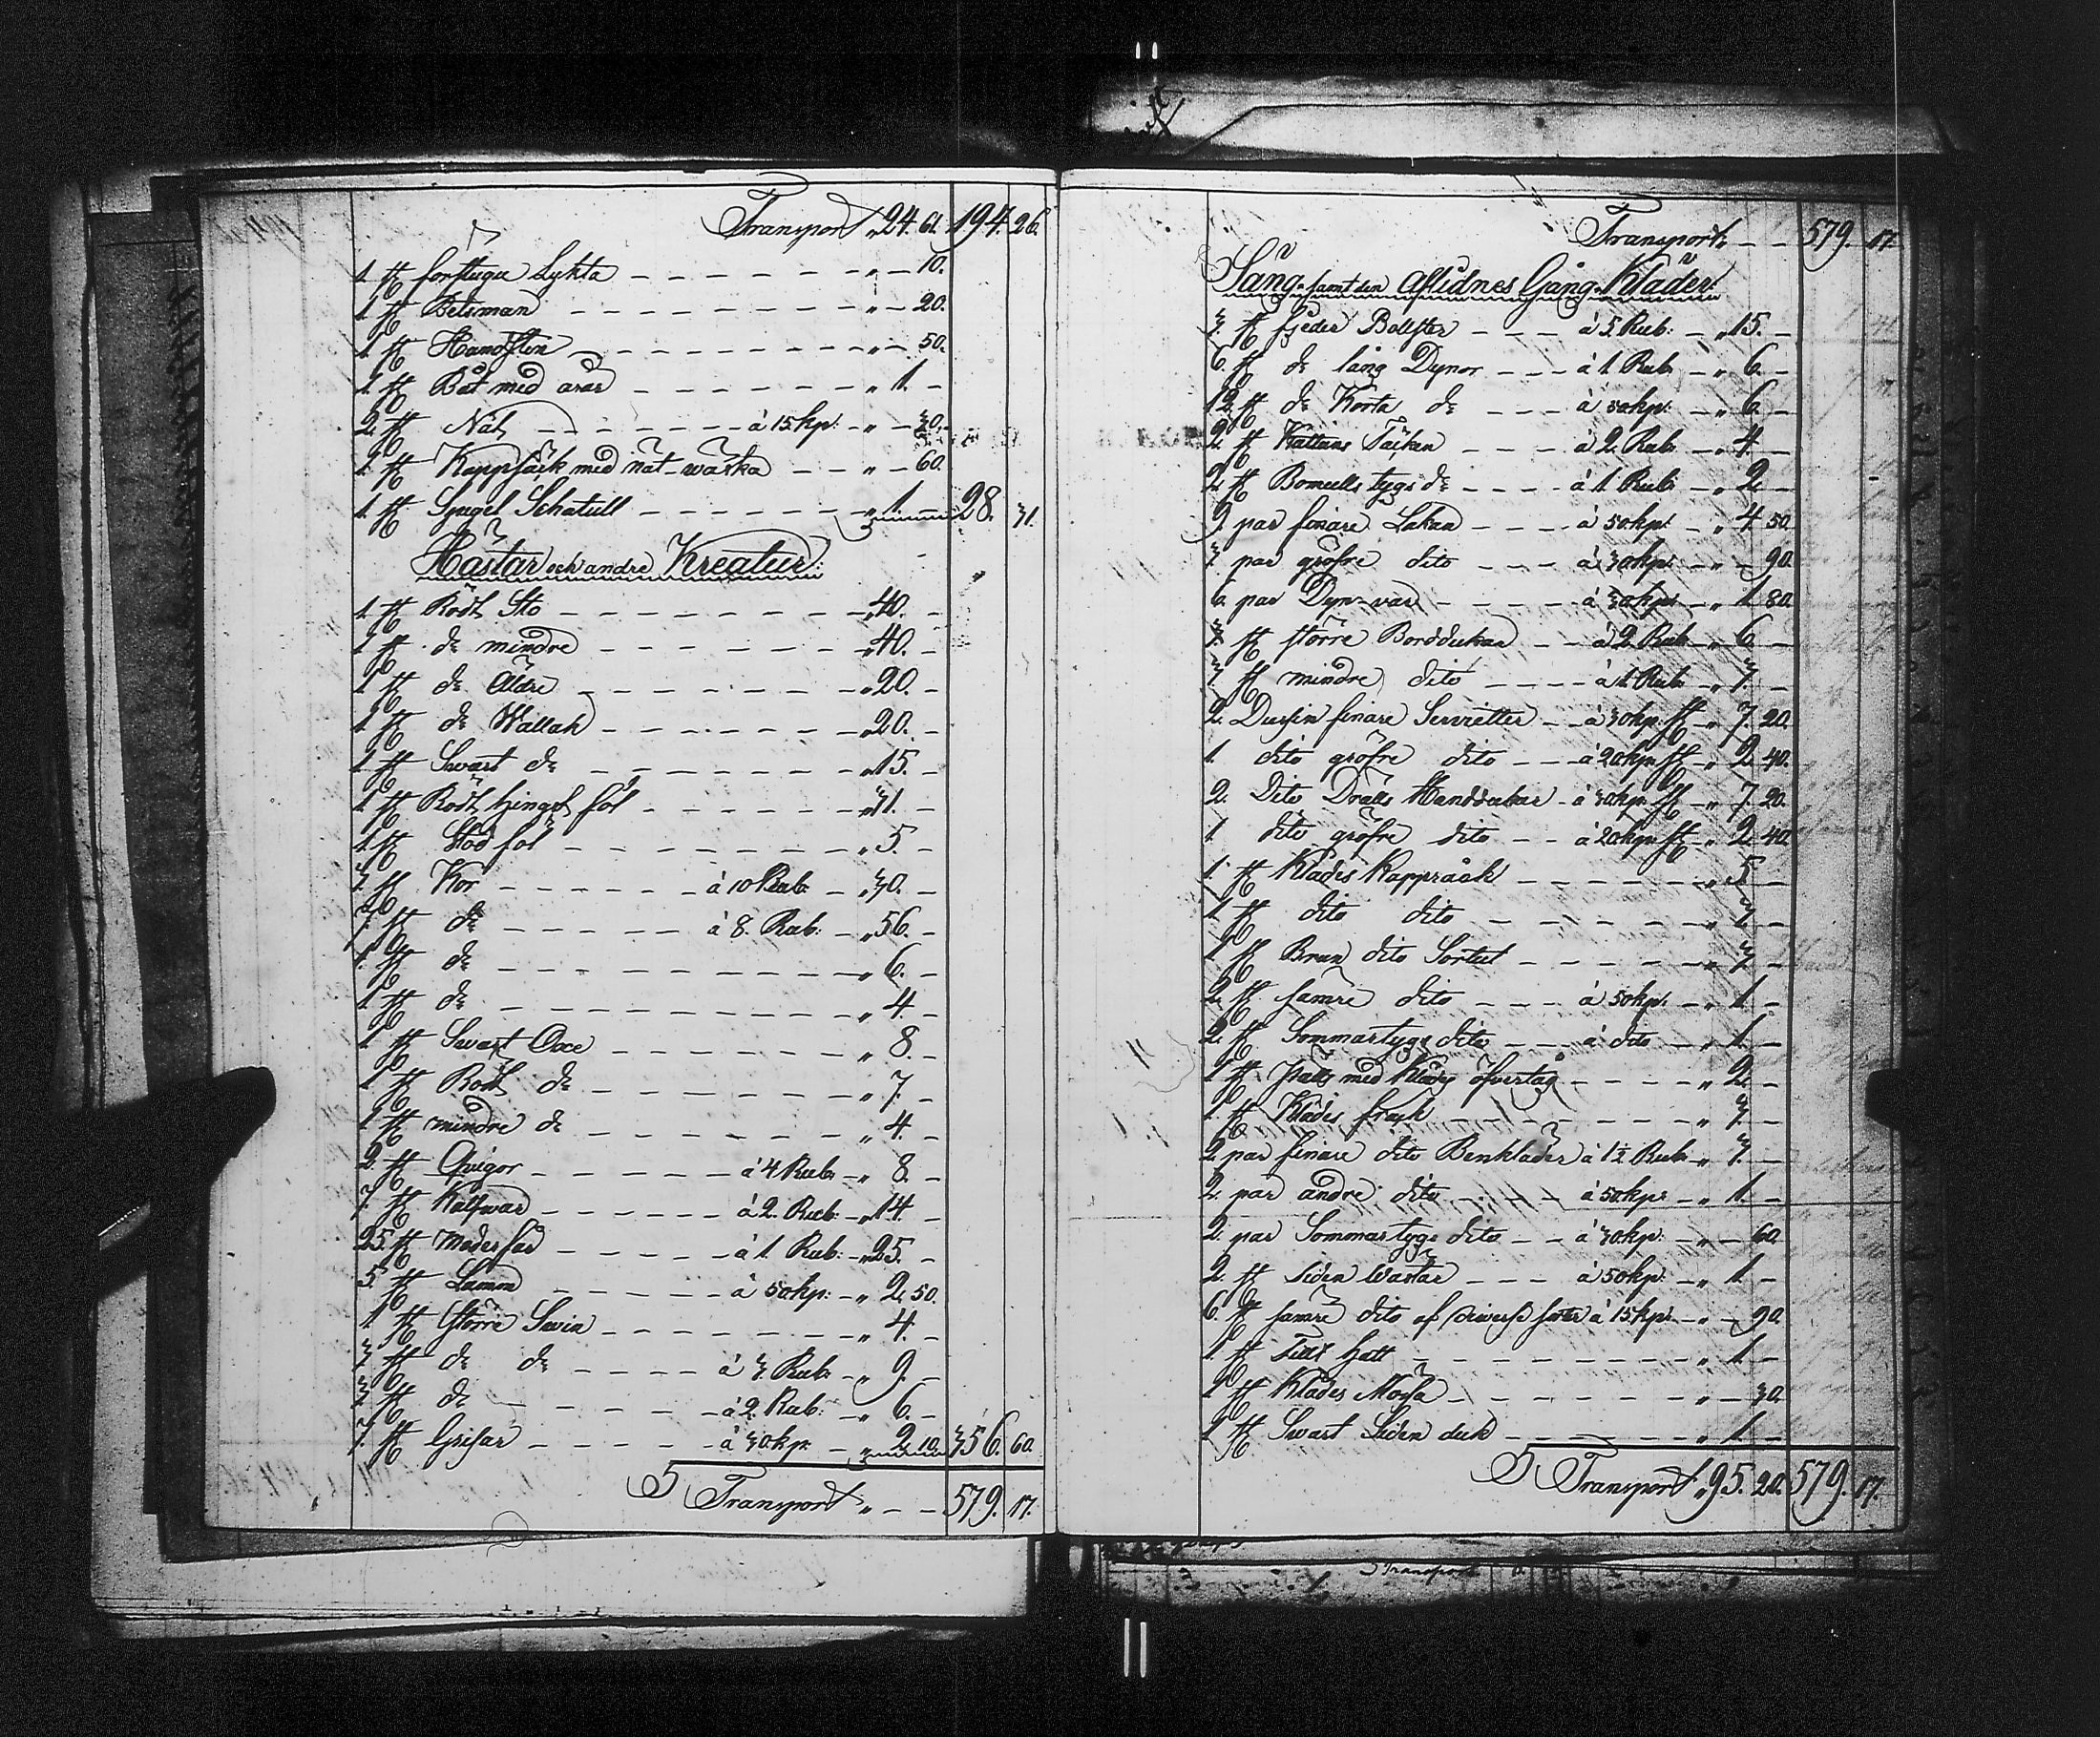 Transport „ 24. 61. 194. 26.
1. st förstugu Lykta „ — 10.
1 st Betsman „ — 20.
1. st Handsten „ — 50.
1. st Båt med årar „ 1. —
2. st Nät à 15 kp: „ — 30.
1. st Kappsäck med nät-wärka „ — 60.
1. st Spegel Schatull „ 1. — 28. 31.
Hästar och andre Kreatur:
1. st Rödt Sto „ 40. —
1 st do mindre „ 40. —
1 st do Äldre „ 20. —
1. st do Wallak „ 20. —
1. st Swart do „ 15. —
1. st Rödt hingst föl „ 31. —
1 st Stod föl „ 5. —
3. st Kor à 10 Rub: „ 30. —
7. st do à 8. Rub: „ 56. —
1. st do „ 6. —
1. st do „ 4. —
1 st Swart Oxe „ 8. —
1 st Rödt do „ 7. —
1. st mindre do „ 4. —
2 st Quigor à 4 Rub: „ 8. —
7. st Kalfwar à 2. Rub: „ 14. —
25. st moderfår à 1 Rub: „ 25. —
5. st Lamm à 50 kp: „ 2. 50.
1 st större Swin „ 4. —
3 st do do à 3. Rub: „ 9. —
3 st do à 2. Rub: „ 6. —
7. st Grisar à 30 kp: „ 2. 10. 356. 60.
S Transport „ — — 579. 17.
Transport — — 579. 17.
Säng- samt den Aflidnes Gång-Kläder:
3. st fjeder Bolster à 5. Rub: „ 15. —
6. st do lång Dynor à 1 Rub: „ 6. —
12. st do Korta do à 50 kp: „ 6. —
2. st Kattuns Täcken à 2. Rub: „ 4. —
2. st Bomulls tygs do à 1. Rub: „ 2. —
9. par finare Lakan à 50 kp: „ 4. 50.
3. par gröfre dito à 30 kp: „ — 90.
6. par Dyn-var à 30 kp: „ 1. 80.
3. st större Bordduckar à 2. Rub: „ 6. —
3. st mindre dito à 1. Rub: „ 3. —
2. Dussin finare Servietter à 30 kp: st „ 7. 20.
1. dito gröfre dito à 20 kp: st „ 2. 40.
2. Dito Dräls Handdukar à 30 kp: st „ 7. 20.
1 dito gröfre dito à 20 kp: st „ 2. 40.
1. st Klädes Kappråck „ 5. —
1 st dito dito „ 3. —
1 st Brun dito Sortut „ 3. —
2. st sämre dito à 50 kp: „ 1. —
2. st Sommartygs dito à dito „ 1. —
1 st Päls med Klädes öfvertåg „ 2. —
1. st Klädes frack „ 3. —
2. par finare dito Benkläder à 1½ Rub: „ 3. —
2. par andre dito à 50 kp: „ 1. —
2. par Sommartygs dito à 30 kp: „ — 60.
2. st Siden Wästar à 50 kp: „ 1. —
6. st sämre dito af diverse sorter à 15 kp: „ — 90.
1. st Filt Hatt „ 1. —
1 st Klädes Mössa „ — 30.
1 st Swart Siden duk „ 1. —
S Transport „ 95. 20. 579. 17.